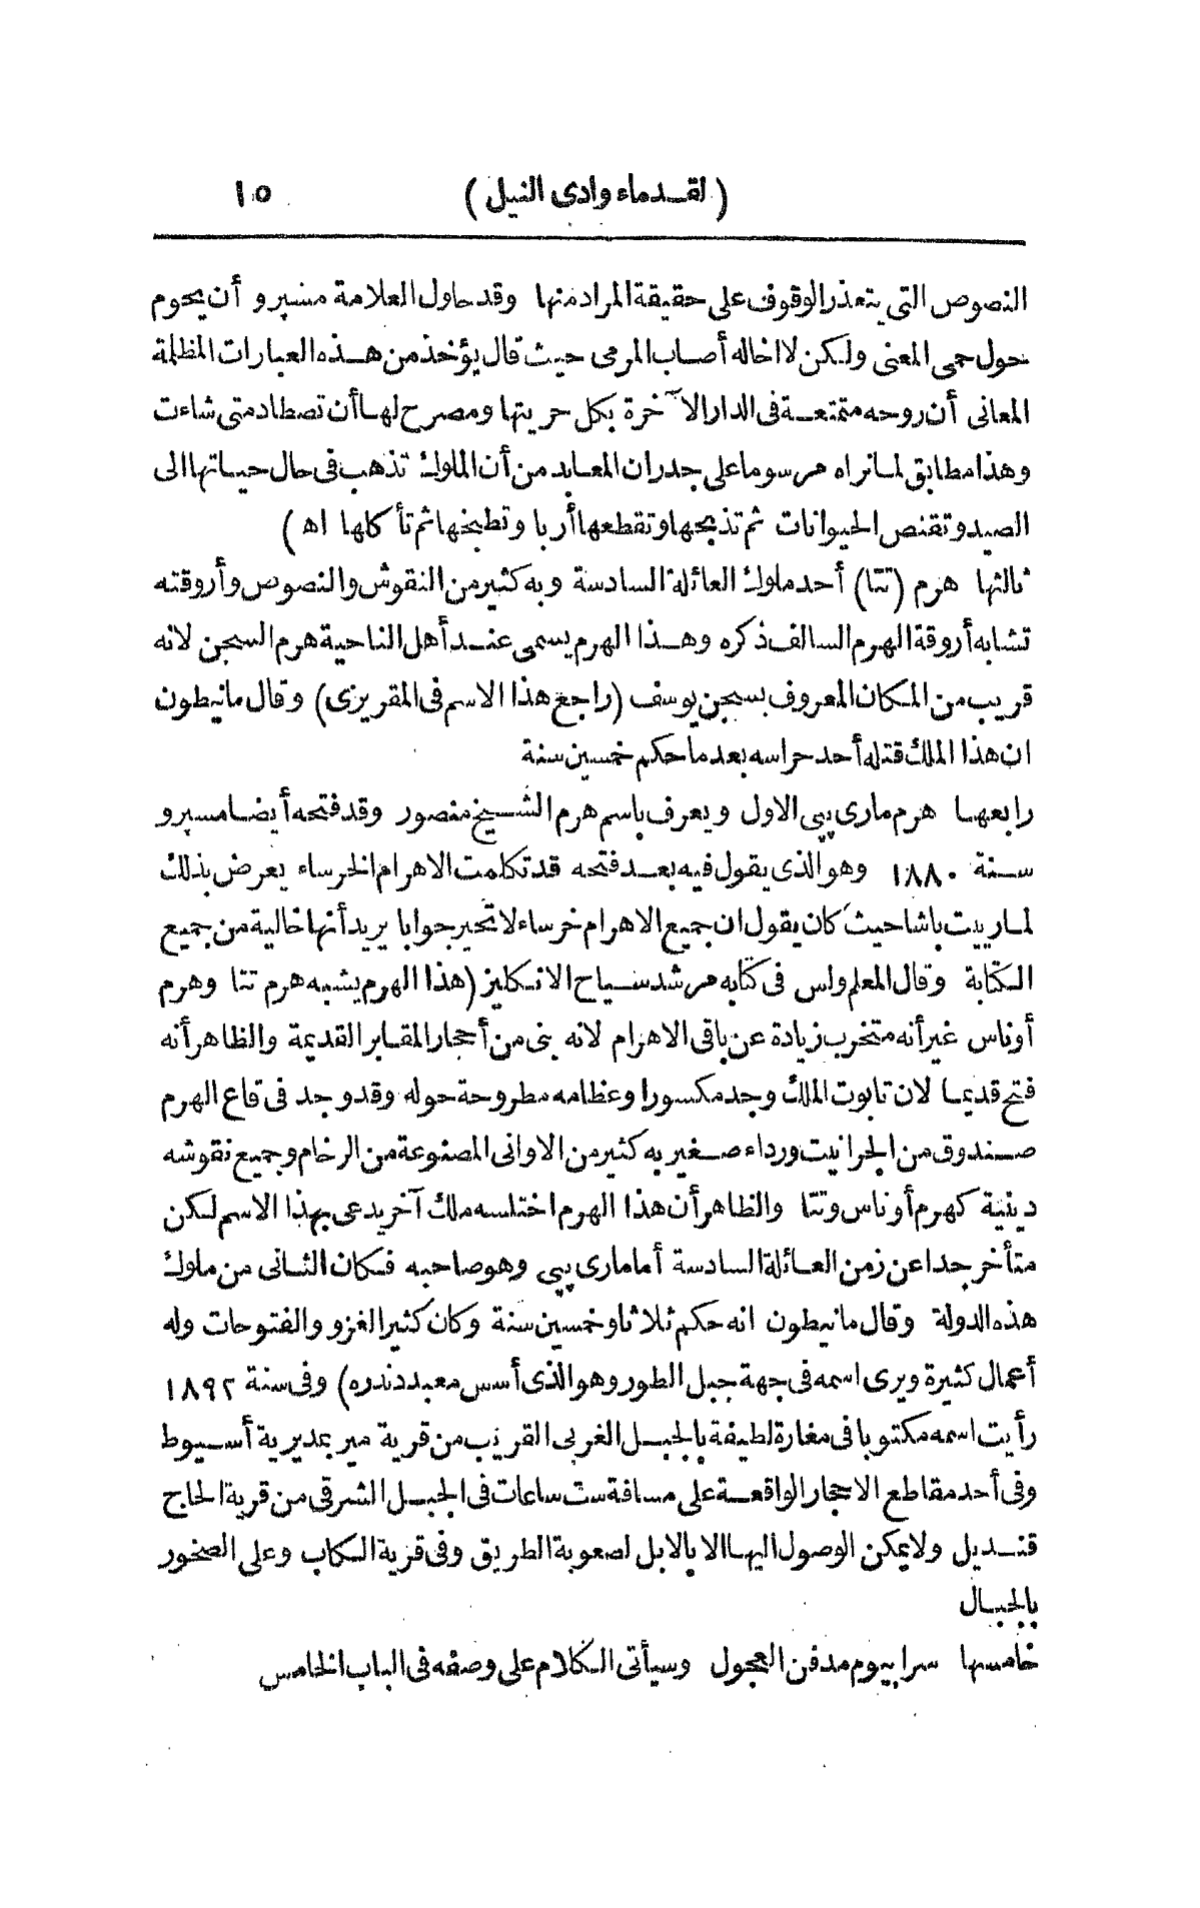 (لقدماء وادى النيل) ١٥
النصوص التى يتعذر الوقوف على حقيقة المراد منها وقد حاول العلامة مسپرو أن يحوم
حول حمى المعنى ولكن لا اخاله أصاب المرمى حيث قال يؤخذ من هذه العبارات المظلمة
المعانى أن روحه متمتعة فى الدار الآخرة بكل حريتها ومصرح لها أن تصطاد متى شاءت
وهذا مطابق لما نراه مرسوما على جدران المعابد من أن الملوك تذهب فى حال حياتها الى
الصيد وتقتنص الحيوانات ثم تذبحها وتقطعها أربا وتطبخها ثم تأكلها اه)
ثالثها هرم (تتا) أحد ملوك العائلة السادسة وبه كثير من النقوش والنصوص وأروقته
تشابه أروقة الهرم السالف ذكره وهذا الهرم يسمى عند أهل الناحية هرم السجن لانه
قريب من المكان المعروف بسجن يوسف (راجع هذا الاسم فى المقريزى) وقال مانيطون
ان هذا الملك قتله أحد حراسه بعد ما حكم خمسين سنة
رابعها هرم مارى پپى الاول ويعرف باسم هرم الشيخ منصور وقد فتحه أيضا مسپرو
سنة ١٨٨٠ وهو الذى يقول فيه بعد فتحه قد تكلمت الاهرام الخرساء يعرض بذلك
لمارييت باشا حيث كان يقول ان جميع الاهرام خرساء لا تحير جوابا يريد أنها خالية من جميع
الكتابة وقال المعلم ولس فى كتابه مرشد سياح الانكليز (هذا الهرم يشبه هرم تتا وهرم
أوناس غير أنه متخرب زيادة عن باقى الاهرام لانه بنى من أحجار المقابر القديمة والظاهر أنه
فتح قديما لان تابوت الملك وجد مكسورا وعظامه مطروحة حوله وقد وجد فى قاع الهرم
صندوق من الجرانيت ورداء صغير به كثير من الاوانى المصنوعة من الرخام وجميع نقوشه
دينية كهرم أوناس وتتا والظاهر أن هذا الهرم اختلسه ملك آخر يدعى بهذا الاسم لكن
متأخر جدا عن زمن العائلة السادسة أما مارى پپى وهو صاحبه فكان الثانى من ملوك
هذه الدولة وقال مانيطون انه حكم ثلاثا وخمسين سنة وكان كثير الغزو والفتوحات وله
أعمال كثيرة ويرى اسمه فى جهة جبل الطور وهو الذى أسس معبد دندره) وفى سنة ١٨٩٢
رأيت اسمه مكتوبا فى مغارة لطيفة بالجبل الغربى القريب من قرية مير بمديرية أسيوط
وفى أحد مقاطع الاحجار الواقعة على مسافة ست ساعات فى الجبل الشرقى من قرية الحاج
قنديل ولا يمكن الوصول اليها الا بالابل لصعوبة الطريق وفى قرية الكاب وعلى الصخور
بالجبال
خامسها سرابيوم مدفن العجول وسيأتى الكلام على وصفه فى الباب الخامس